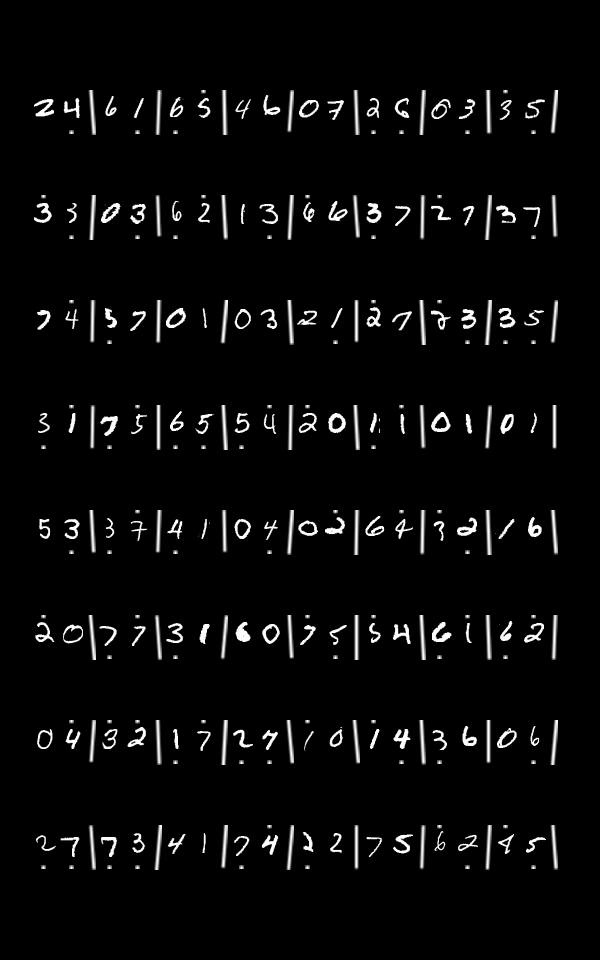 2 4 | 6 1 | 6 5 | 4 6 | 0 7 | 2 6 | 0 3 | 3 5 |
3 3 | 0 3 | 6 2 | 1 3 | 6 6 | 3 7 | 2 7 | 3 7 |
7 4 | 5 7 | 0 1 | 0 3 | 2 1 | 2 7 | 2 3 | 3 5 |
3 1 | 7 5 | 6 5 | 5 4 | 2 0 | 1 1 | 0 1 | 0 1 |
5 3 | 3 7 | 4 1 | 0 4 | 0 2 | 6 4 | 3 2 | 1 6 |
2 0 | 7 7 | 3 1 | 6 0 | 7 5 | 5 4 | 6 1 | 6 2 |
0 4 | 3 2 | 1 7 | 2 7 | 1 0 | 1 4 | 3 6 | 0 6 |
2 7 | 7 3 | 4 1 | 7 4 | 2 2 | 7 5 | 6 2 | 4 5 |